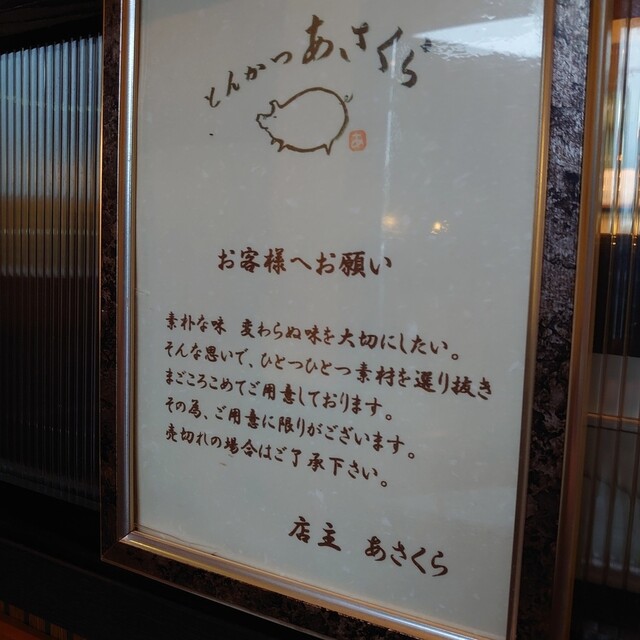 とんかつ あさくら
お客様へお願い
素朴な味 変わらぬ味を大切にしたい。
そんな思いで、ひとつひとつ素材を選り抜き
まごころこめてご用意しております。
その為、ご用意に限りがございます。
売切れの場合はご了承下さい。
店主 あさくら